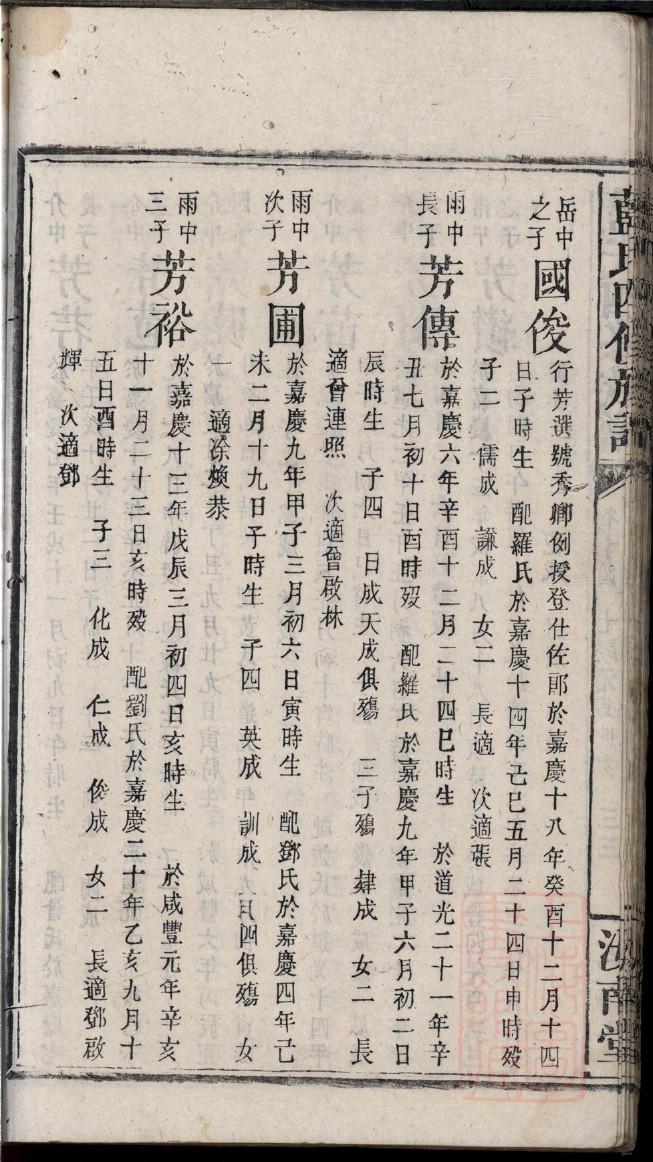 藍氏四修族譜
岳中之子 國俊 行芳選號秀卿例授登仕佐郎於嘉慶十八年癸酉十二月十四
日子時生 配羅氏於嘉慶十四年己巳五月二十四日申時歿
子二 儒成 謙成 女二 長適 次適張
雨中長子 芳傳 於嘉慶六年辛酉十二月二十四巳時生 於道光二十一年辛
丑七月初十日酉時歿 配羅氏於嘉慶九年甲子六月初二日
辰時生 子四 日成天成俱殤 三子殤 肆成 女二 長
適曾連照 次適曾啟林
雨中次子 芳圃 於嘉慶九年甲子三月初六日寅時生 配鄧氏於嘉慶四年己
未二月十九日子時生 子四 英成 訓成 九月四俱殤 女
一 適涂煥恭
雨中三子 芳裕 於嘉慶十三年戊辰三月初四日亥時生 於咸豐元年辛亥
十一月二十三日亥時歿 配劉氏於嘉慶二十年乙亥九月十
五日酉時生 子三 化成 仁成 俊成 女二 長適鄧啟
輝 次適鄧